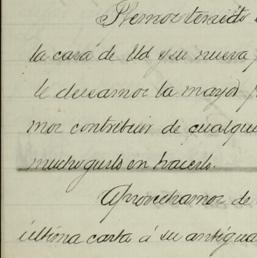 Hemos tenido
la casa de Ud y su nueva
le deseamos la mayor
mos contribuir de cualque
mucho gusto en hacerlo.
Aprovechamos de
última carta á su antigua